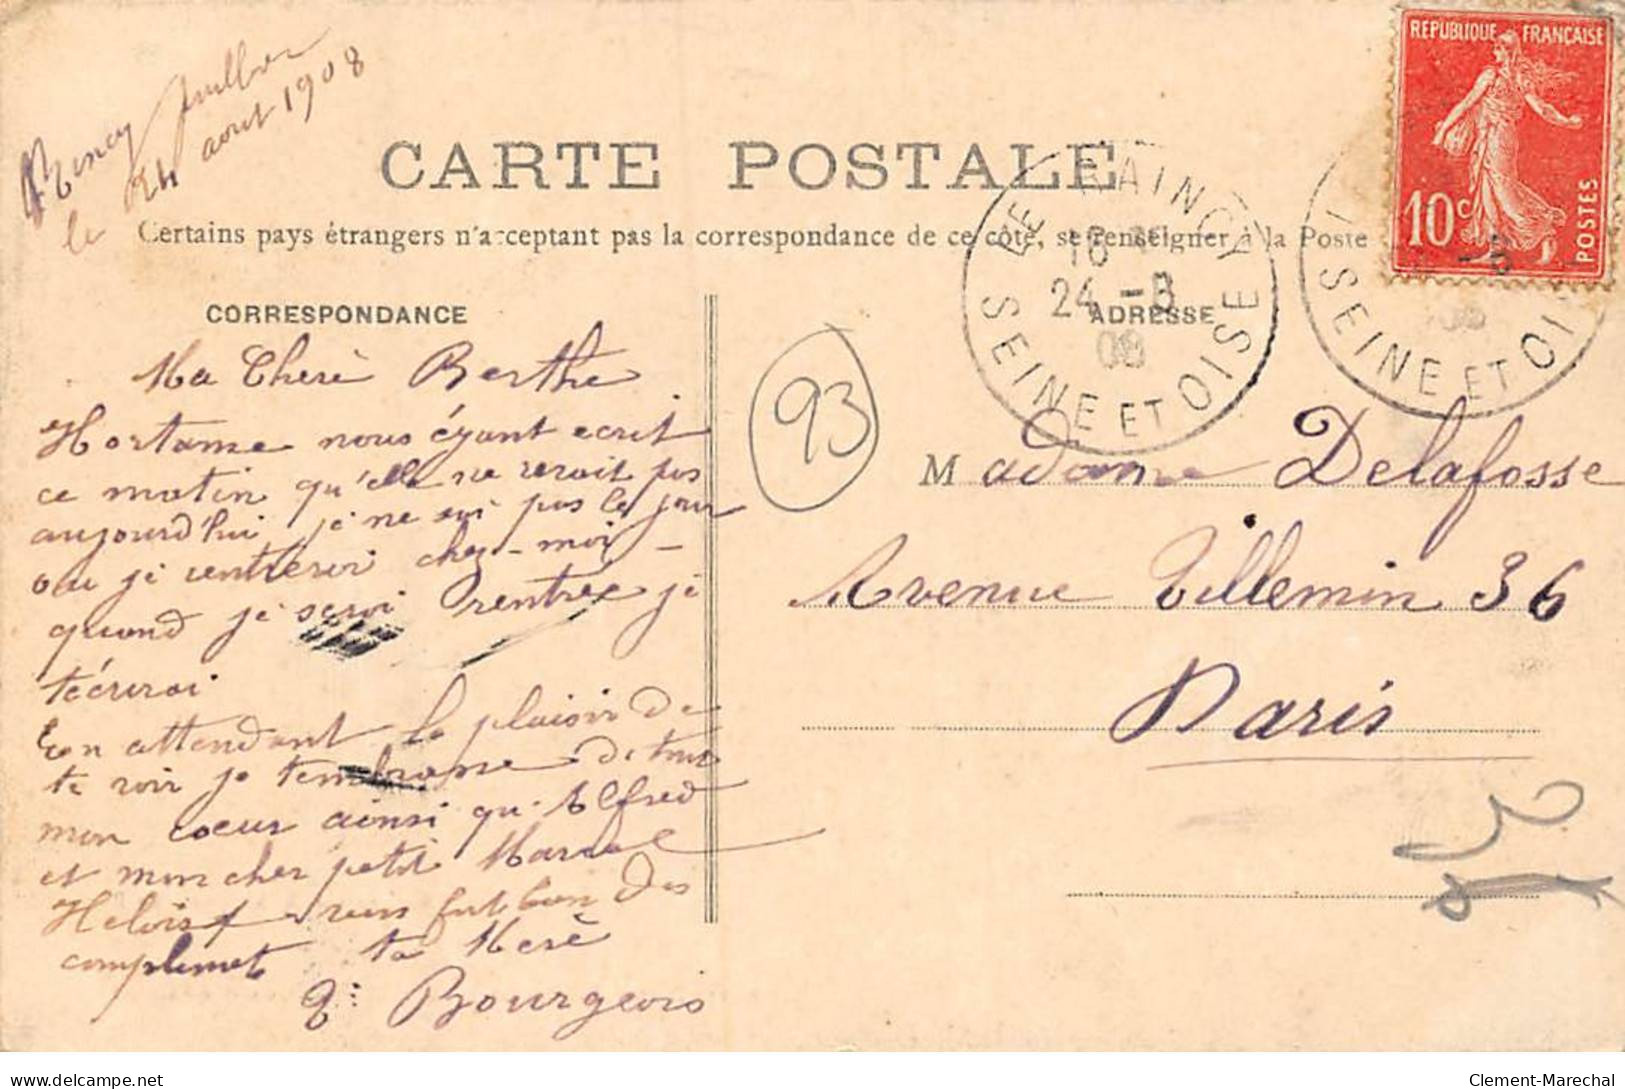 le 24 aout 1908
CARTE POSTALE
Certains pays étrangers n'acceptent pas la correspondance de ce côté, se renseigner à la Poste
REPUBLIQUE FRANÇAISE
10c
POSTES
LE RAINCY
16
24 -8
08
SEINE ET OISE
SEINE ET OI
CORRESPONDANCE
ADRESSE
93
Ma Cherè Berthe
Hortanse nous éyant ecrit
ce matin qu'elle ne reroit pas
aujourd'hui je ne sai pas le jour
ou je rentrerai chez-moi-
quand je serai rentrée je
técrirai
En attendant le plaisir de
te voir je tembrasse de tout
mon coeur ainsi qu'Alfred
et mon cher petit Marcel
Heloïse vous fait bien des
complimet ta Merè
Bourgeois
Madame Delafosse
Avenue Villemin 36
Paris
Clement-Marechal
delcampe.net